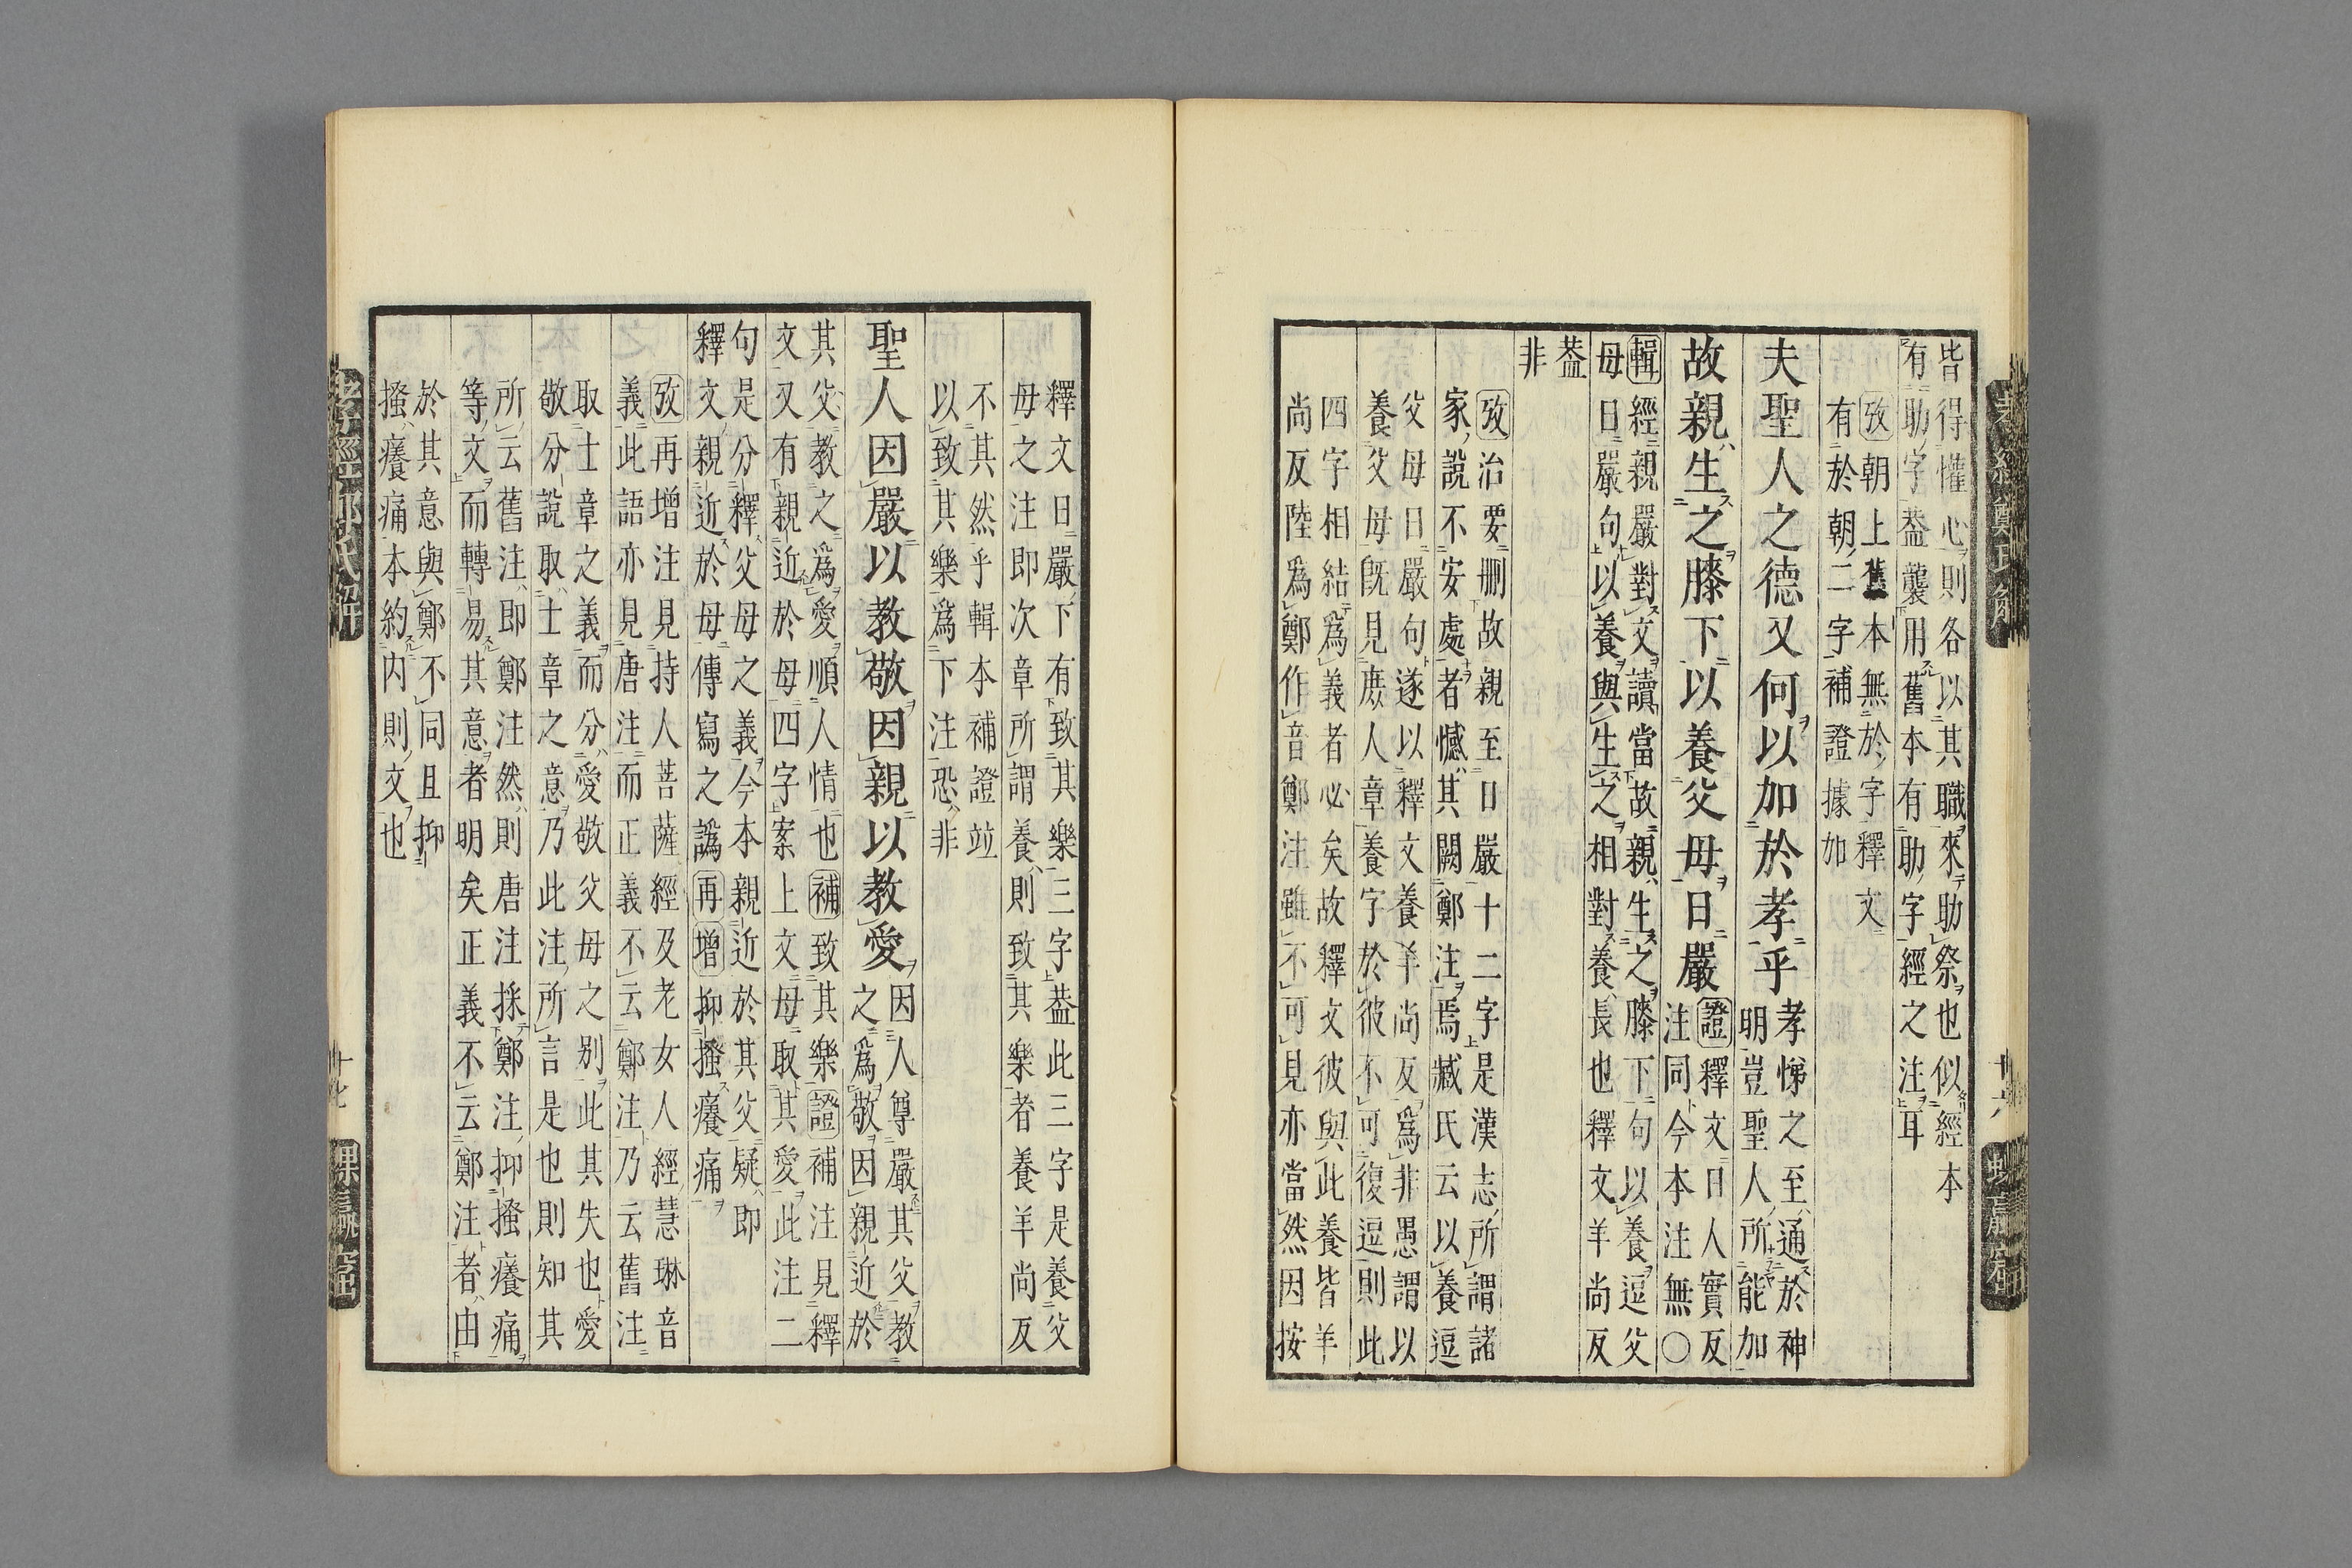 皆得懽心則各以其職來助祭也似經本
有助字葢襲用舊本有助字經之注耳
攷朝上舊本無於字釋文
有於朝二字補證據加
夫聖人之德又何以加於孝乎
孝悌之至通於神
明豈聖人所能加
故親生之膝下以養父母日嚴
證釋文日人實反
注同今本注無〇
輯經親嚴對文讀當故親生之膝下句以養逗父
母日嚴句以養與生之相對養長也釋文羊尚反
葢
非
攷治要刪故親至日嚴十二字是漢志所謂諸
家說不安處者憾其闕鄭注焉臧氏云以養逗
父母日嚴句遂以釋文養羊尚反爲非愚謂以
養父母旣見庶人章養字於彼不可復逗則此
四字相結爲義者必矣故釋文彼與此養皆羊
尚反陸爲鄭作音鄭注雖不可見亦當然因按
釋文日嚴下有致其樂三字葢此三字是養父
母之注即次章所謂養則致其樂者養羊尚反
不其然乎輯本補證竝
以致其樂爲下注恐非
聖人因嚴以教敬因親以教愛
因人尊嚴其父教
之爲敬因親近於
其父教之爲愛順人情也補致其樂證補注見釋
文又有親近於母四字案上文母取其愛此注二
句是分釋父母之義今本親近於其父疑即
釋文親近於母傳寫之譌再增抑搔癢痛
攷再增注見持人菩薩經及老女人經慧琳音
義此語亦見唐注而正義不云鄭注乃云舊注
取士章之義而分愛敬父母之別此其失也愛
敬分說取士章之意乃此注所言是也則知其
所云舊注即鄭注然則唐注採鄭注抑搔癢痛
等文而轉易其意者明矣正義不云鄭注者由
於其意與鄭不同且抑
搔癢痛本約内則文也
孝經鄭氏解
十七